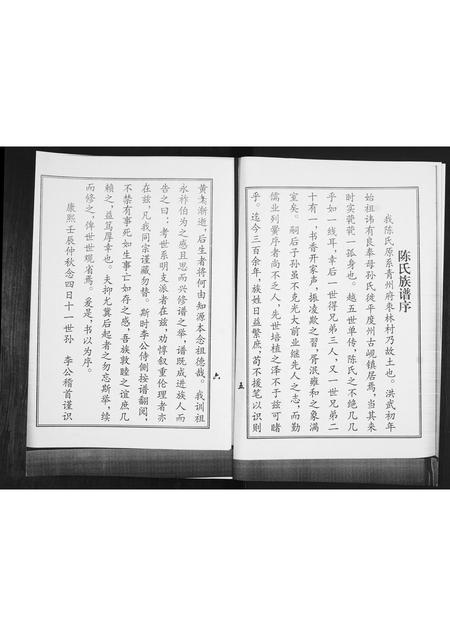 陈氏族谱序
我陈氏原系青州府枣林村乃故土也。洪武初年
始祖讳有良奉母孙氏徙平度州古岘镇居焉，当其来
时实茕茕一孤身也。越五世单传，陈氏之不绝几几
乎如一线耳，幸后一世得兄弟三人，又一世兄弟二
十有一，书香开家声，振凌欺之習，胥泯雍和之象满
室矣。嗣后子孙虽不克光大前业继先人之志，而勤
儒业列黉序者尚不乏人，先世培植之泽不于兹可睹
乎。迄今三百余年，族姓日益繁庶，苟不援笔以识则
五
黄耇渐逝，后生者将何由知源本念祖德哉。我训祖
永祚伯为之感且思而兴修谱之举，谱既成进族人而
告之曰：考世系明支派者在兹，劝惇叙重伦理者亦
在兹，凡我同宗谨藏勿替。斯时李公侍侧按谱翻阅，
不禁有事死如生事亡如存之感，吾族敦睦之谊庶几
赖之，益笃厚幸也。夫抑尤冀后起者之勿忘斯举，续
而修之，俾世世观省焉。爰是，书以为序。
康熙壬辰仲秋念四日十一世孙　李公稽首谨识
六